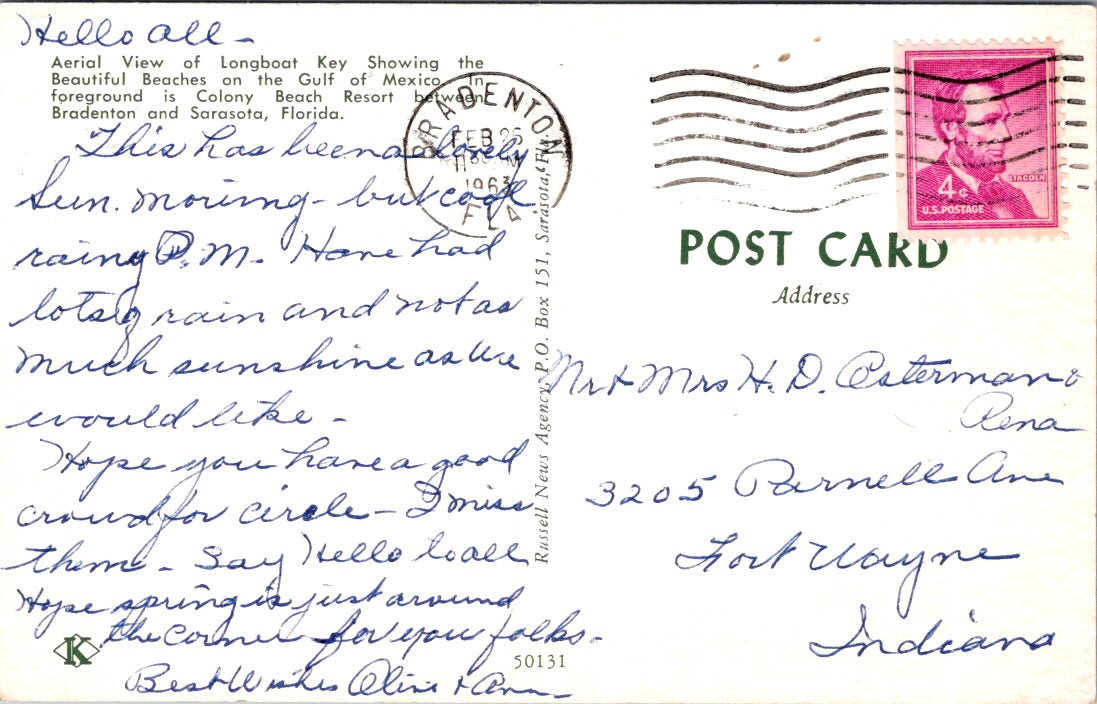 Hello all -
Aerial View of Longboat Key Showing the
Beautiful Beaches on the Gulf of Mexico. In
foreground is Colony Beach Resort between
Bradenton and Sarasota, Florida.
This has been a lovely
Sun. moring - but cool
rainy P.M. Have had
lots of rain and not as
much sunshine as we
would like -
Hope you have a good
crowd for circle - I miss
them - Say Hello to all
Hope spring is just around
the corner for you folks -
Best Wishes Olive & Ann -
K
50131
Russell News Agency, P.O. Box 151, Sarasota, Fla.
BRADENTON
FEB 25
1963
FLA
4c
LINCOLN
U.S. POSTAGE
POST CARD
Address
Mr & Mrs H. D. Osterman &
Rena
3205 Parnell Ave
Fort Wayne
Indiana